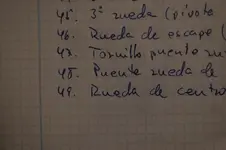 45. 3ª rueda (pivote
46. Rueda de escape (
47. Tornillo puente
48. Puente rueda de
49. Rueda de centro